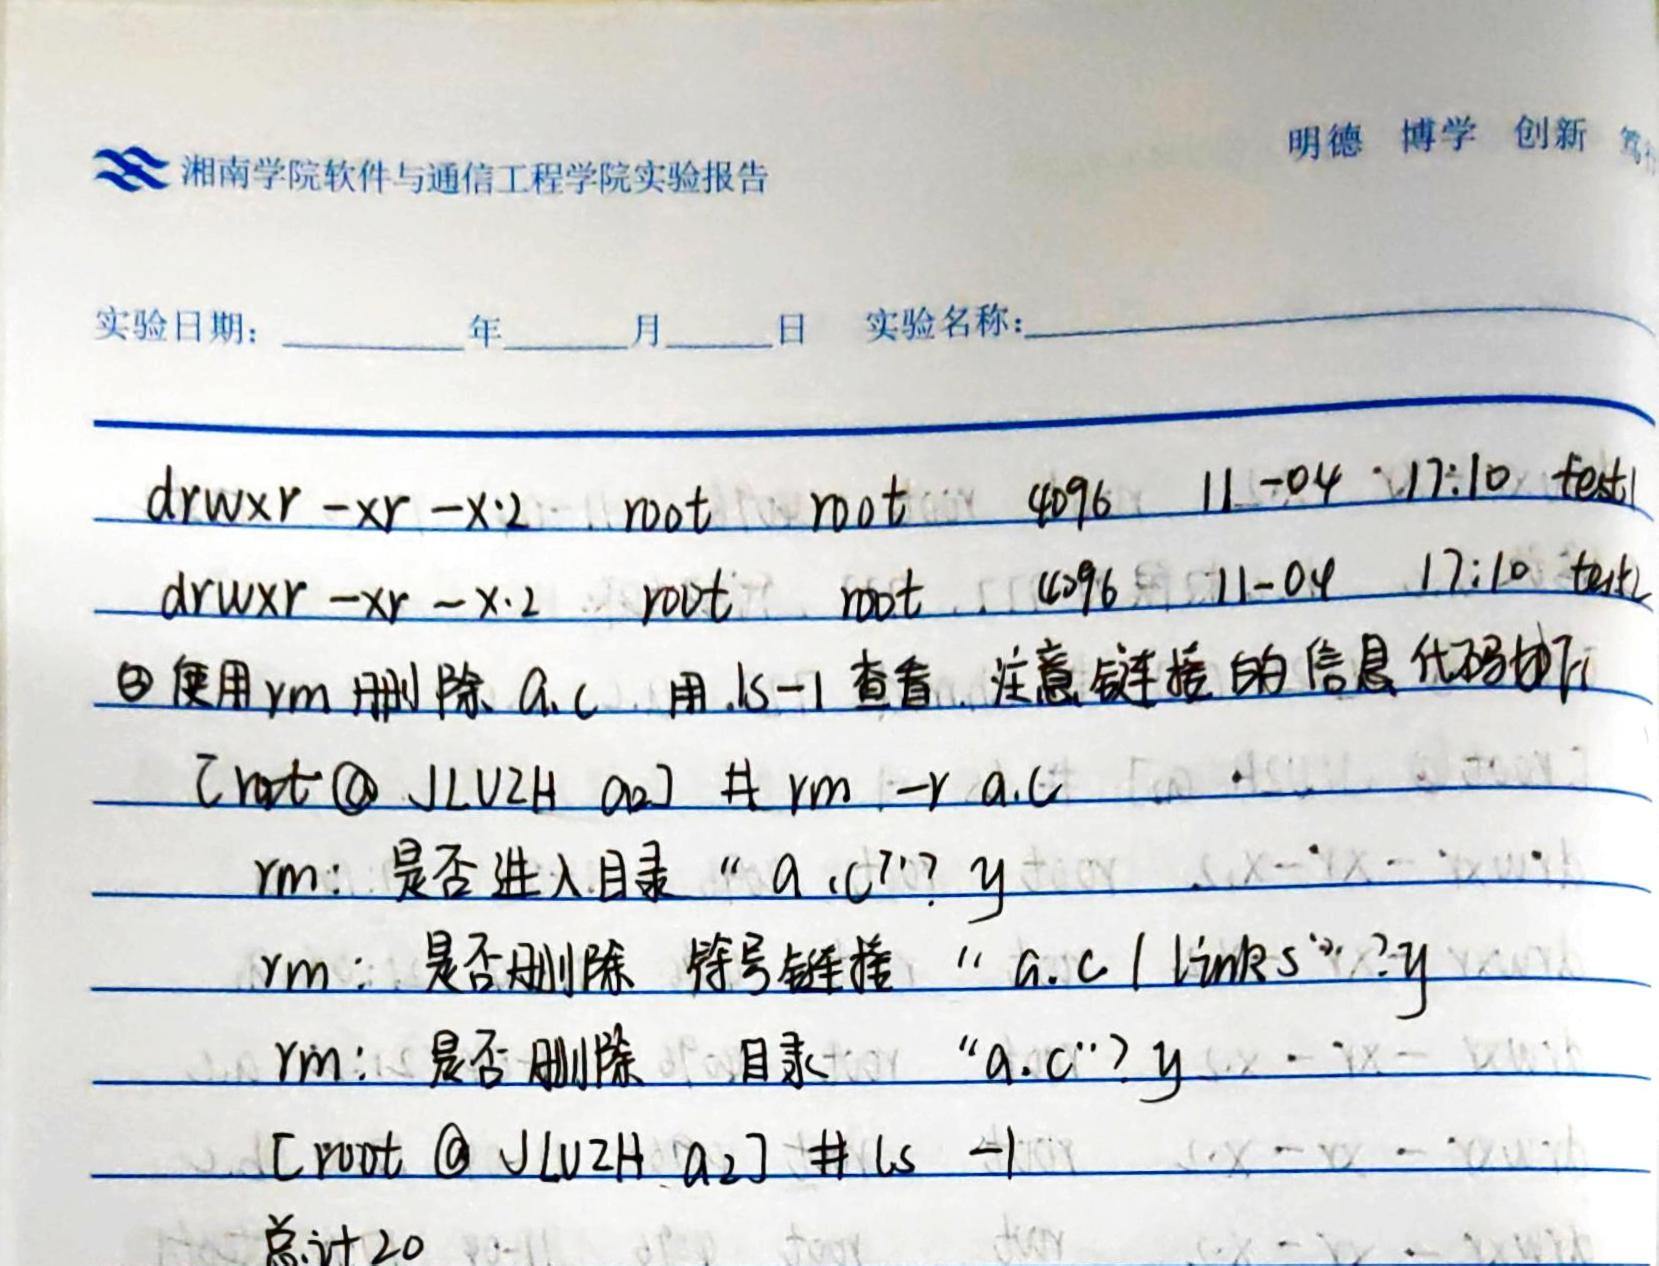 明德 博学 创新 笃行
湘南学院软件与通信工程学院实验报告
实验日期: ______年______月______日 实验名称:______
drwxr -xr -x.2 root root 4096 11-04 17:10 test1
drwxr -xr -x.2 root root 4096 11-04 17:10 test2
使用rm删除 a.c 用 ls -l 查看 注意链接的信息 代码如下
[root @ JLUZH a2] # rm -r a.c
rm: 是否进入目录 "a.c"? y
rm: 是否删除 符号链接 "a.c / links"? y
rm: 是否删除 目录 "a.c"? y
[root @ JLUZH a2] # ls -l
总计20